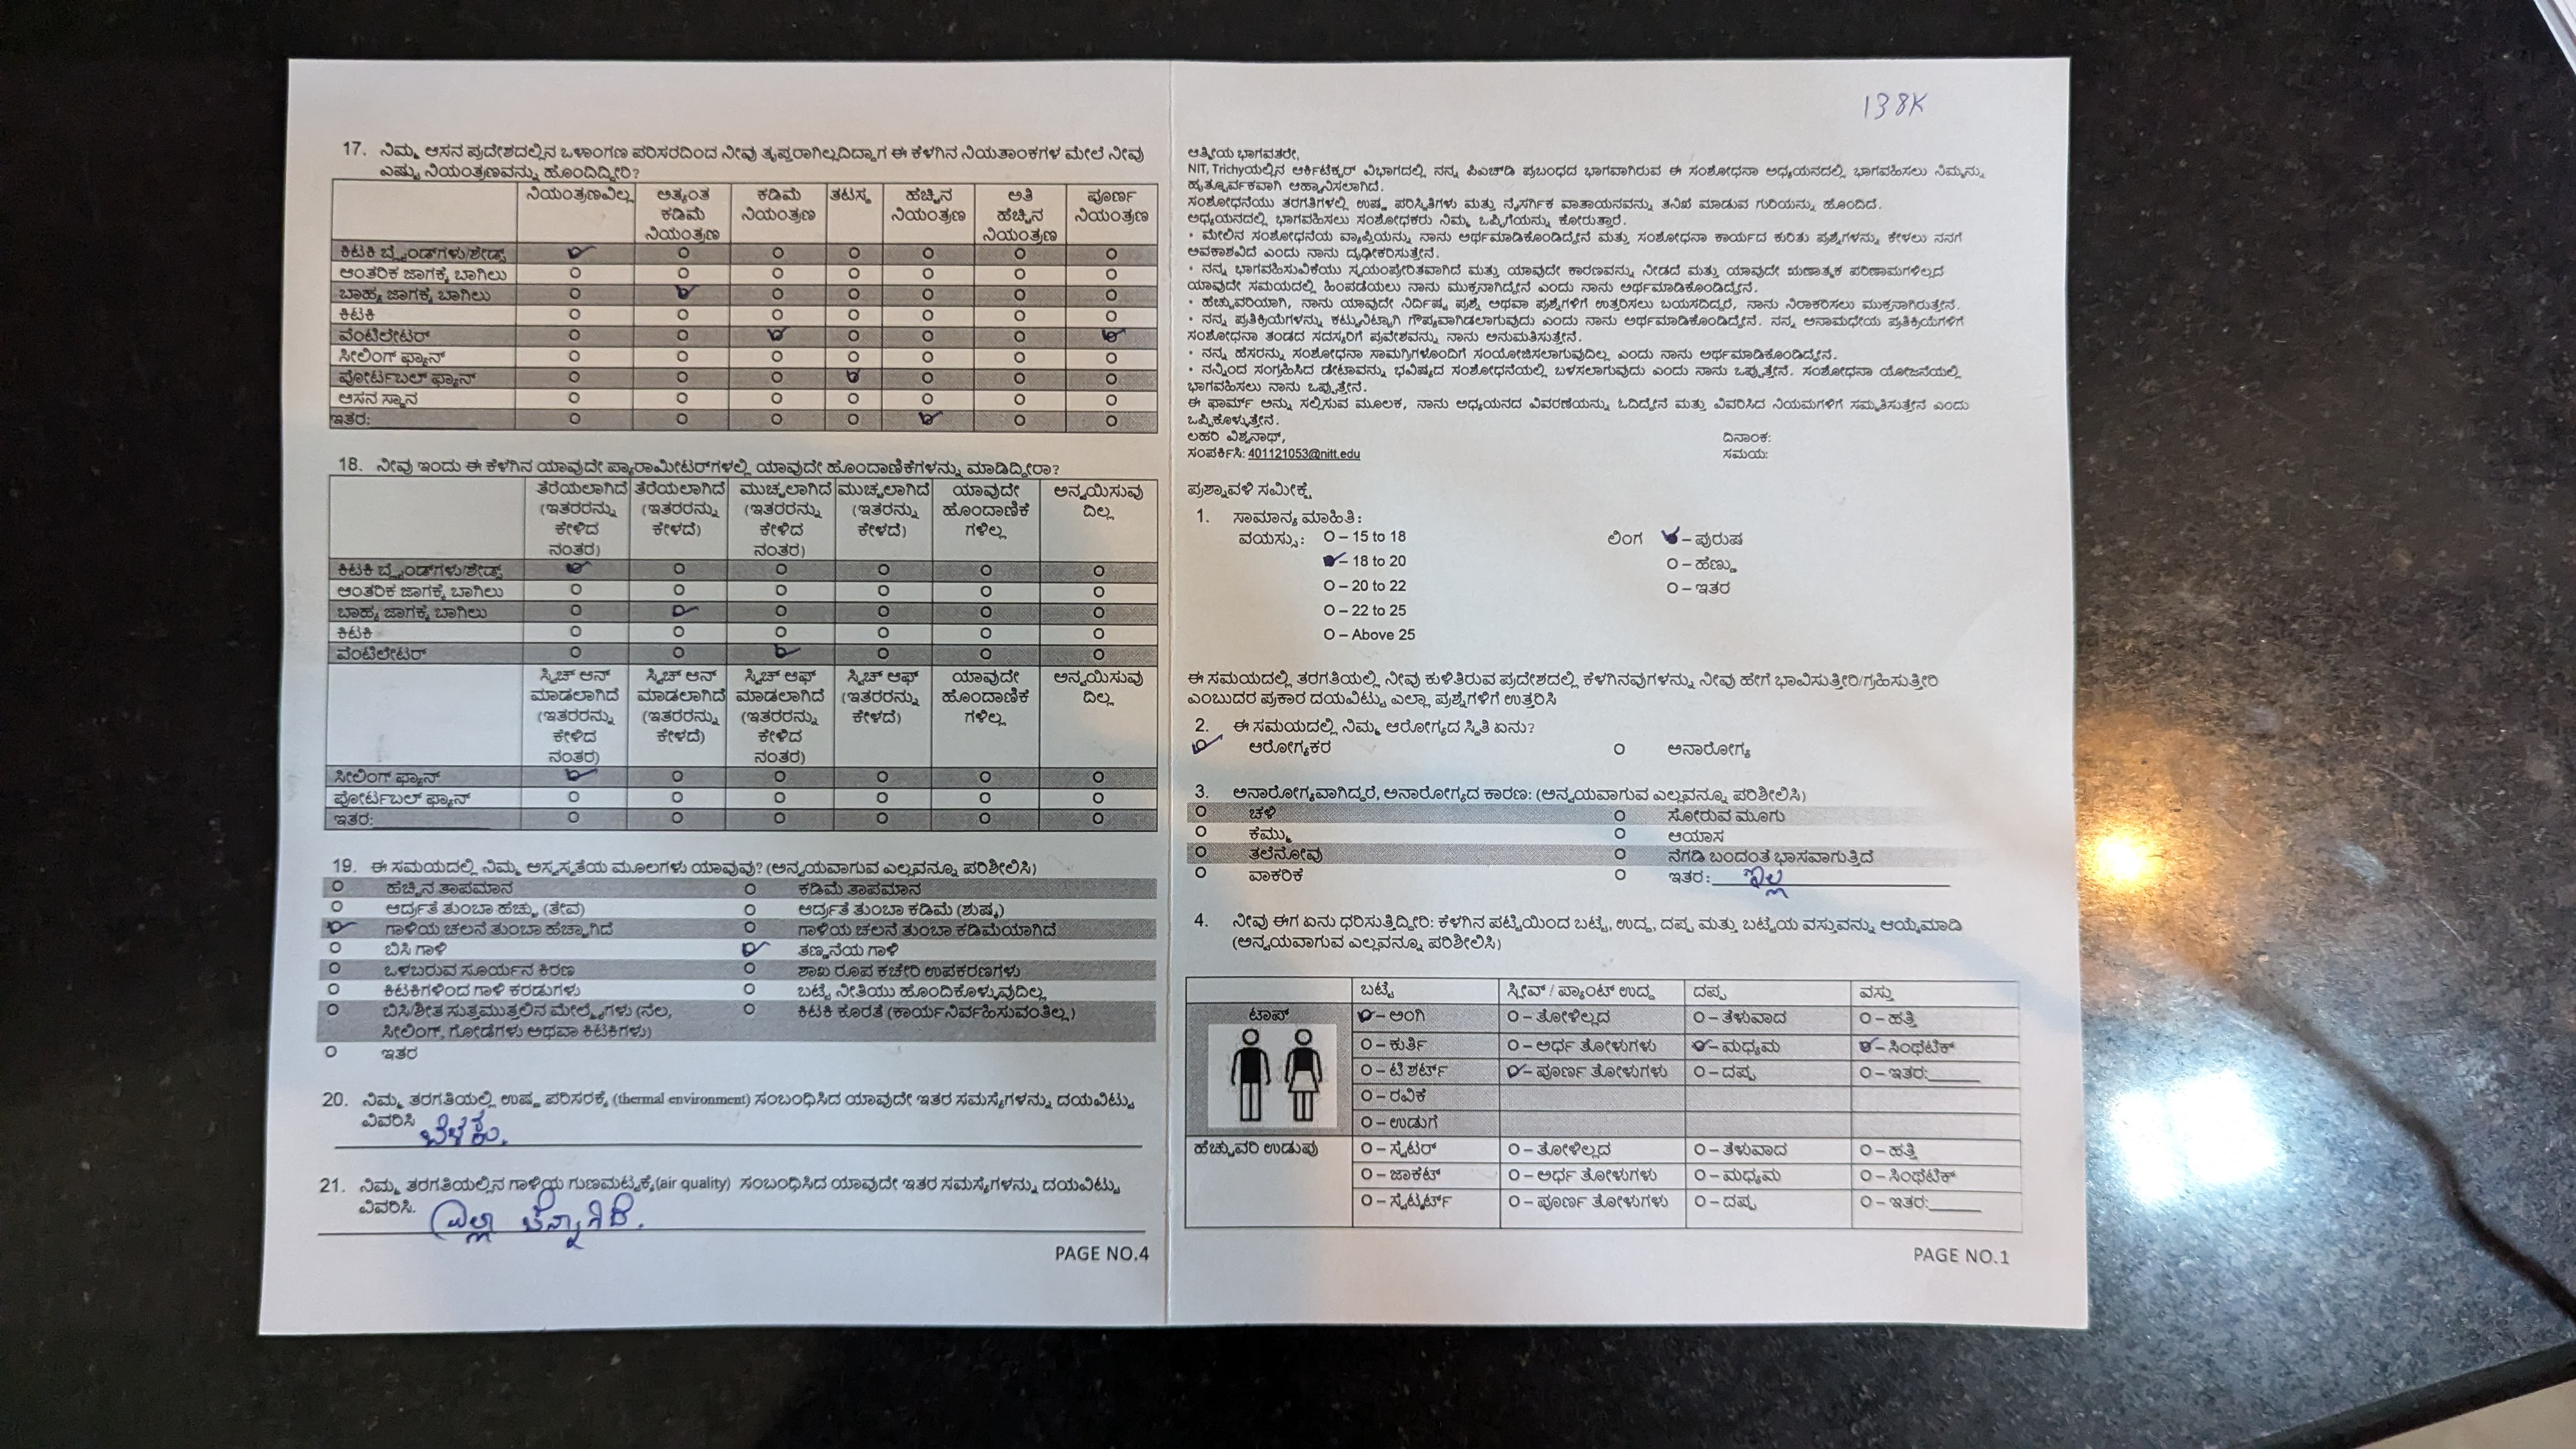 17. ನಿಮ್ಮ ಆಸನ ಪ್ರದೇಶದಲ್ಲಿನ ಒಳಾಂಗಣ ಪರಿಸರದಿಂದ ನೀವು ತೃಪ್ತರಾಗಿಲ್ಲದಿದ್ದಾಗ ಈ ಕೆಳಗಿನ ನಿಯತಾಂಕಗಳ ಮೇಲೆ ನೀವು
ಎಷ್ಟು ನಿಯಂತ್ರಣವನ್ನು ಹೊಂದಿದ್ದೀರಿ?
ನಿಯಂತ್ರಣವಿಲ್ಲ ಅತ್ಯಂತ ಕಡಿಮೆ ನಿಯಂತ್ರಣ ಕಡಿಮೆ ನಿಯಂತ್ರಣ ತಟಸ್ಥ ಹೆಚ್ಚಿನ ನಿಯಂತ್ರಣ ಅತಿ ಹೆಚ್ಚಿನ ನಿಯಂತ್ರಣ ಪೂರ್ಣ ನಿಯಂತ್ರಣ
ಕಿಟಕಿ ಬ್ಲೈಂಡ್‌ಗಳು/ಶೇಡ್ಸ್
ಆಂತರಿಕ ಜಾಗಕ್ಕೆ ಬಾಗಿಲು
ಬಾಹ್ಯ ಜಾಗಕ್ಕೆ ಬಾಗಿಲು
ಕಿಟಕಿ
ವೆಂಟಿಲೇಟರ್
ಸೀಲಿಂಗ್ ಫ್ಯಾನ್
ಪೋರ್ಟಬಲ್ ಫ್ಯಾನ್
ಆಸನ ಸ್ಥಾನ
ಇತರ:
18. ನೀವು ಇಂದು ಈ ಕೆಳಗಿನ ಯಾವುದೇ ಪ್ಯಾರಾಮೀಟರ್‌ಗಳಲ್ಲಿ ಯಾವುದೇ ಹೊಂದಾಣಿಕೆಗಳನ್ನು ಮಾಡಿದ್ದೀರಾ?
ತೆರೆಯಲಾಗಿದೆ (ಇತರರನ್ನು ಕೇಳಿದ ನಂತರ) ತೆರೆಯಲಾಗಿದೆ (ಇತರರನ್ನು ಕೇಳದೆ) ಮುಚ್ಚಲಾಗಿದೆ (ಇತರರನ್ನು ಕೇಳಿದ ನಂತರ) ಮುಚ್ಚಲಾಗಿದೆ (ಇತರನ್ನು ಕೇಳದೆ) ಯಾವುದೇ ಹೊಂದಾಣಿಕೆ ಗಳಿಲ್ಲ ಅನ್ವಯಿಸುವು ದಿಲ್ಲ
ಕಿಟಕಿ ಬ್ಲೈಂಡ್‌ಗಳು/ಶೇಡ್ಸ್
ಆಂತರಿಕ ಜಾಗಕ್ಕೆ ಬಾಗಿಲು
ಬಾಹ್ಯ ಜಾಗಕ್ಕೆ ಬಾಗಿಲು
ಕಿಟಕಿ
ವೆಂಟಿಲೇಟರ್
ಸ್ವಿಚ್ ಆನ್ ಮಾಡಲಾಗಿದೆ (ಇತರರನ್ನು ಕೇಳಿದ ನಂತರ) ಸ್ವಿಚ್ ಆನ್ ಮಾಡಲಾಗಿದೆ (ಇತರರನ್ನು ಕೇಳದೆ) ಸ್ವಿಚ್ ಆಫ್ ಮಾಡಲಾಗಿದೆ (ಇತರರನ್ನು ಕೇಳಿದ ನಂತರ) ಸ್ವಿಚ್ ಆಫ್ (ಇತರರನ್ನು ಕೇಳದೆ) ಯಾವುದೇ ಹೊಂದಾಣಿಕೆ ಗಳಿಲ್ಲ ಅನ್ವಯಿಸುವು ದಿಲ್ಲ
ಸೀಲಿಂಗ್ ಫ್ಯಾನ್
ಪೋರ್ಟಬಲ್ ಫ್ಯಾನ್
ಇತರ:
19. ಈ ಸಮಯದಲ್ಲಿ ನಿಮ್ಮ ಅಸ್ವಸ್ಥತೆಯ ಮೂಲಗಳು ಯಾವುವು? (ಅನ್ವಯವಾಗುವ ಎಲ್ಲವನ್ನೂ ಪರಿಶೀಲಿಸಿ)
ಹೆಚ್ಚಿನ ತಾಪಮಾನ ಕಡಿಮೆ ತಾಪಮಾನ
ಆರ್ದ್ರತೆ ತುಂಬಾ ಹೆಚ್ಚು (ತೇವ) ಆರ್ದ್ರತೆ ತುಂಬಾ ಕಡಿಮೆ (ಶುಷ್ಕ)
ಗಾಳಿಯ ಚಲನೆ ತುಂಬಾ ಹೆಚ್ಚಾಗಿದೆ ಗಾಳಿಯ ಚಲನೆ ತುಂಬಾ ಕಡಿಮೆಯಾಗಿದೆ
ಬಿಸಿ ಗಾಳಿ ತಣ್ಣನೆಯ ಗಾಳಿ
ಒಳಬರುವ ಸೂರ್ಯನ ಕಿರಣ ಶಾಖ ರೂಪ ಕಚೇರಿ ಉಪಕರಣಗಳು
ಕಿಟಕಿಗಳಿಂದ ಗಾಳಿ ಕರಡುಗಳು ಬಟ್ಟೆ ನೀತಿಯು ಹೊಂದಿಕೊಳ್ಳುವುದಿಲ್ಲ
ಬಿಸಿ/ಶೀತ ಸುತ್ತಮುತ್ತಲಿನ ಮೇಲ್ಮೈಗಳು (ನೆಲ, ಕಿಟಕಿ ಕೊರತೆ (ಕಾರ್ಯನಿರ್ವಹಿಸುವಂತಿಲ್ಲ)
ಸೀಲಿಂಗ್, ಗೋಡೆಗಳು ಅಥವಾ ಕಿಟಕಿಗಳು)
ಇತರ
20. ನಿಮ್ಮ ತರಗತಿಯಲ್ಲಿ ಉಷ್ಣ ಪರಿಸರಕ್ಕೆ (thermal environment) ಸಂಬಂಧಿಸಿದ ಯಾವುದೇ ಇತರ ಸಮಸ್ಯೆಗಳನ್ನು ದಯವಿಟ್ಟು
ವಿವರಿಸಿ ಬೆಳಕು.
21. ನಿಮ್ಮ ತರಗತಿಯಲ್ಲಿನ ಗಾಳಿಯ ಗುಣಮಟ್ಟಕ್ಕೆ(air quality) ಸಂಬಂಧಿಸಿದ ಯಾವುದೇ ಇತರ ಸಮಸ್ಯೆಗಳನ್ನು ದಯವಿಟ್ಟು
ವಿವರಿಸಿ. ಎಲ್ಲಾ ಚೆನ್ನಾಗಿದೆ.
PAGE NO.4
138K
ಆತ್ಮೀಯ ಭಾಗವತರೇ,
NIT, Trichyಯಲ್ಲಿನ ಆರ್ಕಿಟೆಕ್ಚರ್ ವಿಭಾಗದಲ್ಲಿ ನನ್ನ ಪಿಎಚ್‌ಡಿ ಪ್ರಬಂಧದ ಭಾಗವಾಗಿರುವ ಈ ಸಂಶೋಧನಾ ಅಧ್ಯಯನದಲ್ಲಿ ಭಾಗವಹಿಸಲು ನಿಮ್ಮನ್ನು
ಹೃತ್ಪೂರ್ವಕವಾಗಿ ಆಹ್ವಾನಿಸಲಾಗಿದೆ.
ಸಂಶೋಧನೆಯು ತರಗತಿಗಳಲ್ಲಿ ಉಷ್ಣ ಪರಿಸ್ಥಿತಿಗಳು ಮತ್ತು ನೈಸರ್ಗಿಕ ವಾತಾಯನವನ್ನು ತನಿಖೆ ಮಾಡುವ ಗುರಿಯನ್ನು ಹೊಂದಿದೆ.
ಅಧ್ಯಯನದಲ್ಲಿ ಭಾಗವಹಿಸಲು ಸಂಶೋಧಕರು ನಿಮ್ಮ ಒಪ್ಪಿಗೆಯನ್ನು ಕೋರುತ್ತಾರೆ.
• ಮೇಲಿನ ಸಂಶೋಧನೆಯ ವ್ಯಾಪ್ತಿಯನ್ನು ನಾನು ಅರ್ಥಮಾಡಿಕೊಂಡಿದ್ದೇನೆ ಮತ್ತು ಸಂಶೋಧನಾ ಕಾರ್ಯದ ಕುರಿತು ಪ್ರಶ್ನೆಗಳನ್ನು ಕೇಳಲು ನನಗೆ
ಅವಕಾಶವಿದೆ ಎಂದು ನಾನು ದೃಢೀಕರಿಸುತ್ತೇನೆ.
• ನನ್ನ ಭಾಗವಹಿಸುವಿಕೆಯು ಸ್ವಯಂಪ್ರೇರಿತವಾಗಿದೆ ಮತ್ತು ಯಾವುದೇ ಕಾರಣವನ್ನು ನೀಡದೆ ಮತ್ತು ಯಾವುದೇ ಋಣಾತ್ಮಕ ಪರಿಣಾಮಗಳಿಲ್ಲದೆ
ಯಾವುದೇ ಸಮಯದಲ್ಲಿ ಹಿಂಪಡೆಯಲು ನಾನು ಮುಕ್ತನಾಗಿದ್ದೇನೆ ಎಂದು ನಾನು ಅರ್ಥಮಾಡಿಕೊಂಡಿದ್ದೇನೆ.
• ಹೆಚ್ಚುವರಿಯಾಗಿ, ನಾನು ಯಾವುದೇ ನಿರ್ದಿಷ್ಟ ಪ್ರಶ್ನೆ ಅಥವಾ ಪ್ರಶ್ನೆಗಳಿಗೆ ಉತ್ತರಿಸಲು ಬಯಸದಿದ್ದರೆ, ನಾನು ನಿರಾಕರಿಸಲು ಮುಕ್ತನಾಗಿರುತ್ತೇನೆ.
• ನನ್ನ ಪ್ರತಿಕ್ರಿಯೆಗಳನ್ನು ಕಟ್ಟುನಿಟ್ಟಾಗಿ ಗೌಪ್ಯವಾಗಿಡಲಾಗುವುದು ಎಂದು ನಾನು ಅರ್ಥಮಾಡಿಕೊಂಡಿದ್ದೇನೆ. ನನ್ನ ಅನಾಮಧೇಯ ಪ್ರತಿಕ್ರಿಯೆಗಳಿಗೆ
ಸಂಶೋಧನಾ ತಂಡದ ಸದಸ್ಯರಿಗೆ ಪ್ರವೇಶವನ್ನು ನಾನು ಅನುಮತಿಸುತ್ತೇನೆ.
• ನನ್ನ ಹೆಸರನ್ನು ಸಂಶೋಧನಾ ಸಾಮಗ್ರಿಗಳೊಂದಿಗೆ ಸಂಯೋಜಿಸಲಾಗುವುದಿಲ್ಲ ಎಂದು ನಾನು ಅರ್ಥಮಾಡಿಕೊಂಡಿದ್ದೇನೆ.
• ನನ್ನಿಂದ ಸಂಗ್ರಹಿಸಿದ ಡೇಟಾವನ್ನು ಭವಿಷ್ಯದ ಸಂಶೋಧನೆಯಲ್ಲಿ ಬಳಸಲಾಗುವುದು ಎಂದು ನಾನು ಒಪ್ಪುತ್ತೇನೆ. ಸಂಶೋಧನಾ ಯೋಜನೆಯಲ್ಲಿ
ಭಾಗವಹಿಸಲು ನಾನು ಒಪ್ಪುತ್ತೇನೆ.
ಈ ಫಾರ್ಮ್ ಅನ್ನು ಸಲ್ಲಿಸುವ ಮೂಲಕ, ನಾನು ಅಧ್ಯಯನದ ವಿವರಣೆಯನ್ನು ಓದಿದ್ದೇನೆ ಮತ್ತು ವಿವರಿಸಿದ ನಿಯಮಗಳಿಗೆ ಸಮ್ಮತಿಸುತ್ತೇನೆ ಎಂದು
ಒಪ್ಪಿಕೊಳ್ಳುತ್ತೇನೆ.
ಲಹರಿ ವಿಶ್ವನಾಥ್, ದಿನಾಂಕ:
ಸಂಪರ್ಕಿಸಿ: 401121053@nitt.edu ಸಮಯ:
ಪ್ರಶ್ನಾವಳಿ ಸಮೀಕ್ಷೆ
1. ಸಾಮಾನ್ಯ ಮಾಹಿತಿ:
ವಯಸ್ಸು: O – 15 to 18 ಲಿಂಗ – ಪುರುಷ
– 18 to 20 O – ಹೆಣ್ಣು
O – 20 to 22 O – ಇತರ
O – 22 to 25
O – Above 25
ಈ ಸಮಯದಲ್ಲಿ ತರಗತಿಯಲ್ಲಿ ನೀವು ಕುಳಿತಿರುವ ಪ್ರದೇಶದಲ್ಲಿ ಕೆಳಗಿನವುಗಳನ್ನು ನೀವು ಹೇಗೆ ಭಾವಿಸುತ್ತೀರಿ/ಗ್ರಹಿಸುತ್ತೀರಿ
ಎಂಬುದರ ಪ್ರಕಾರ ದಯವಿಟ್ಟು ಎಲ್ಲಾ ಪ್ರಶ್ನೆಗಳಿಗೆ ಉತ್ತರಿಸಿ
2. ಈ ಸಮಯದಲ್ಲಿ ನಿಮ್ಮ ಆರೋಗ್ಯದ ಸ್ಥಿತಿ ಏನು?
ಆರೋಗ್ಯಕರ O ಅನಾರೋಗ್ಯ
3. ಅನಾರೋಗ್ಯವಾಗಿದ್ದರೆ, ಅನಾರೋಗ್ಯದ ಕಾರಣ: (ಅನ್ವಯವಾಗುವ ಎಲ್ಲವನ್ನೂ ಪರಿಶೀಲಿಸಿ)
O ಚಳಿ O ಸೋರುವ ಮೂಗು
O ಕೆಮ್ಮು O ಆಯಾಸ
O ತಲೆನೋವು O ನೆಗಡಿ ಬಂದಂತೆ ಭಾಸವಾಗುತ್ತಿದೆ
O ವಾಕರಿಕೆ O ಇತರ: ಇಲ್ಲ
4. ನೀವು ಈಗ ಏನು ಧರಿಸುತ್ತಿದ್ದೀರಿ: ಕೆಳಗಿನ ಪಟ್ಟಿಯಿಂದ ಬಟ್ಟೆ, ಉದ್ದ, ದಪ್ಪ ಮತ್ತು ಬಟ್ಟೆಯ ವಸ್ತುವನ್ನು ಆಯ್ಕೆಮಾಡಿ
(ಅನ್ವಯವಾಗುವ ಎಲ್ಲವನ್ನೂ ಪರಿಶೀಲಿಸಿ)
ಬಟ್ಟೆ ಸ್ಲೀವ್ / ಪ್ಯಾಂಟ್ ಉದ್ದ ದಪ್ಪ ವಸ್ತು
ಟಾಪ್ – ಅಂಗಿ O – ತೋಳಿಲ್ಲದ O – ತೆಳುವಾದ O – ಹತ್ತಿ
O – ಕುರ್ತಿ O – ಅರ್ಧ ತೋಳುಗಳು – ಮಧ್ಯಮ – ಸಿಂಥೆಟಿಕ್
O – ಟಿ ಶರ್ಟ್ – ಪೂರ್ಣ ತೋಳುಗಳು O – ದಪ್ಪ O – ಇತರ:
O – ರವಿಕೆ
O – ಉಡುಗೆ
ಹೆಚ್ಚುವರಿ ಉಡುಪು O – ಸ್ವೆಟರ್ O – ತೋಳಿಲ್ಲದ O – ತೆಳುವಾದ O – ಹತ್ತಿ
O – ಜಾಕೆಟ್ O – ಅರ್ಧ ತೋಳುಗಳು O – ಮಧ್ಯಮ O – ಸಿಂಥೆಟಿಕ್
O – ಸ್ವೆಟ್ಶರ್ಟ್ O – ಪೂರ್ಣ ತೋಳುಗಳು O – ದಪ್ಪ O – ಇತರ:
PAGE NO.1